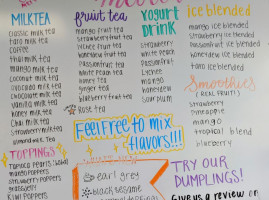 MILKTEA
classic milk tea
taro milk tea
coffee
thai milk tea
mango milk tea
coconut milk tea
avocado milk tea
chocolate milk tea
vanilla milk tea
Honey milk tea
Chai milk tea
strawberry milk tea
almond milk tea
TOPPINGS
fruit tea
mango fruit tea
strawberry fruit tea
lychee fruit tea
honeydew fruit tea
Passionfruit tea
peach fruit tea
White peach tea
honey tea
ginger tea
blueberry fruit tea
Rose tea
YOGURT
DRINK
mango
strawberry
White peach
Passionfruit
Lychee
mango
honeydew
sour plum
ice blended
mango ice blended
strawberry ice blended
Passionfruit ice blended
honeydew ice blended
taro ice blended
Smoothies
(REAL FRUIT)
strawberry
pineapple
mango
tropical blend
blueberry
Feel Free to mix
flavors!!!
earl grey
black sesame
TRY OUR
DUMPLINGS!
Give us a review on